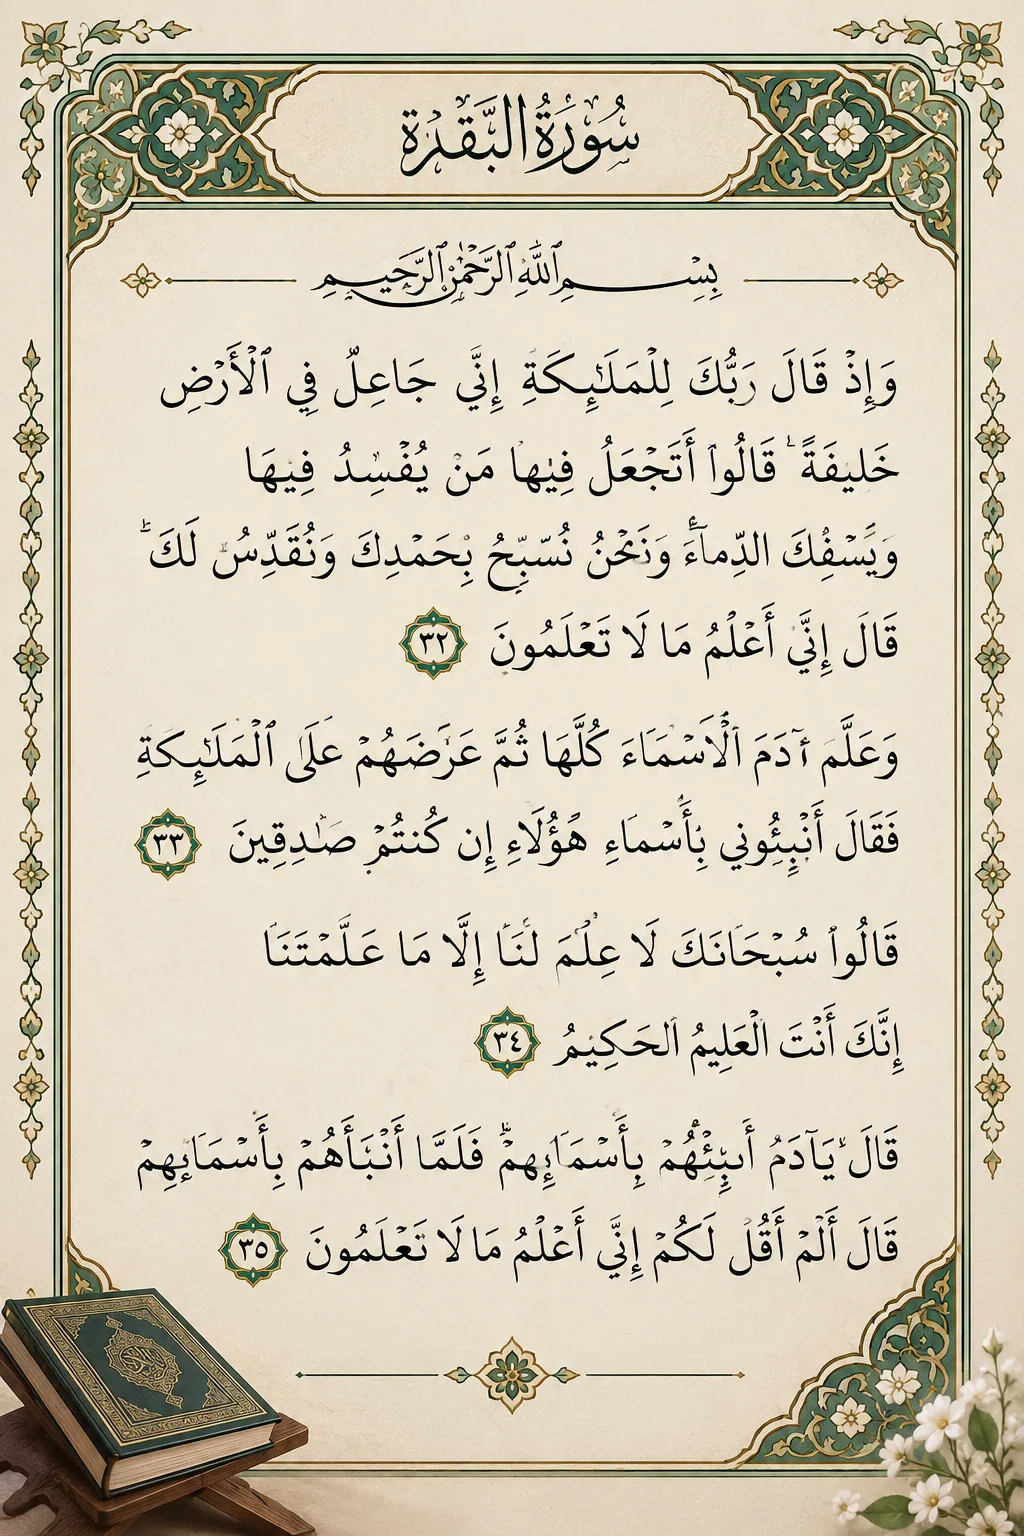 سُورَةُ الْبَقَرَة
بِسْمِ ٱللَّهِ ٱلرَّحْمَٰنِ ٱلرَّحِيمِ
وَإِذْ قَالَ رَبُّكَ لِلْمَلَٰئِكَةِ إِنَّي جَاعِلٌ فِي ٱلْأَرْضِ
خَلِيفَةً ۖ قَالُوا۟ أَتَجْعَلُ فِيهَا مَنْ يُفْسِدُ فِيهَا
وَيَسْفِكَ الدِّمَآءَ وَنَحْنُ نُسَبِّحُ بِحَمْدِكَ وَنُقَدِّسُ لَكَ ۖ
قَالَ إِنَّي أَعْلَمُ مَا لَا تَعْلَمُونَ ٣٢
وَعَلَّمَ ءَادَمَ ٱلْأَسْمَاءَ كُلَّهَا ثُمَّ عَرَضَهُمْ عَلَى ٱلْمَلَٰئِكَةِ
فَقَالَ أَنْبِئُونِي بِأَسْمَاءِ هَٰؤُلَاءِ إِن كُنتُمْ صَٰدِقِينَ ٣٣
قَالُوا۟ سُبْحَانَكَ لَا عِلْمَ لَنَا إِلَّا مَا عَلَّمْتَنَا
إِنَّكَ أَنْتَ الْعَلِيمُ الْحَكِيمُ ٣٤
قَالَ يَآدَمُ أَنبِئْهُمْ بِأَسْمَائِهِمْ ۖ فَلَمَّا أَنْبَأَهُمْ بِأَسْمَائِهِمْ
قَالَ أَلَمْ أَقُلْ لَكُمْ إِنَّي أَعْلَمُ مَا لَا تَعْلَمُونَ ٣٥